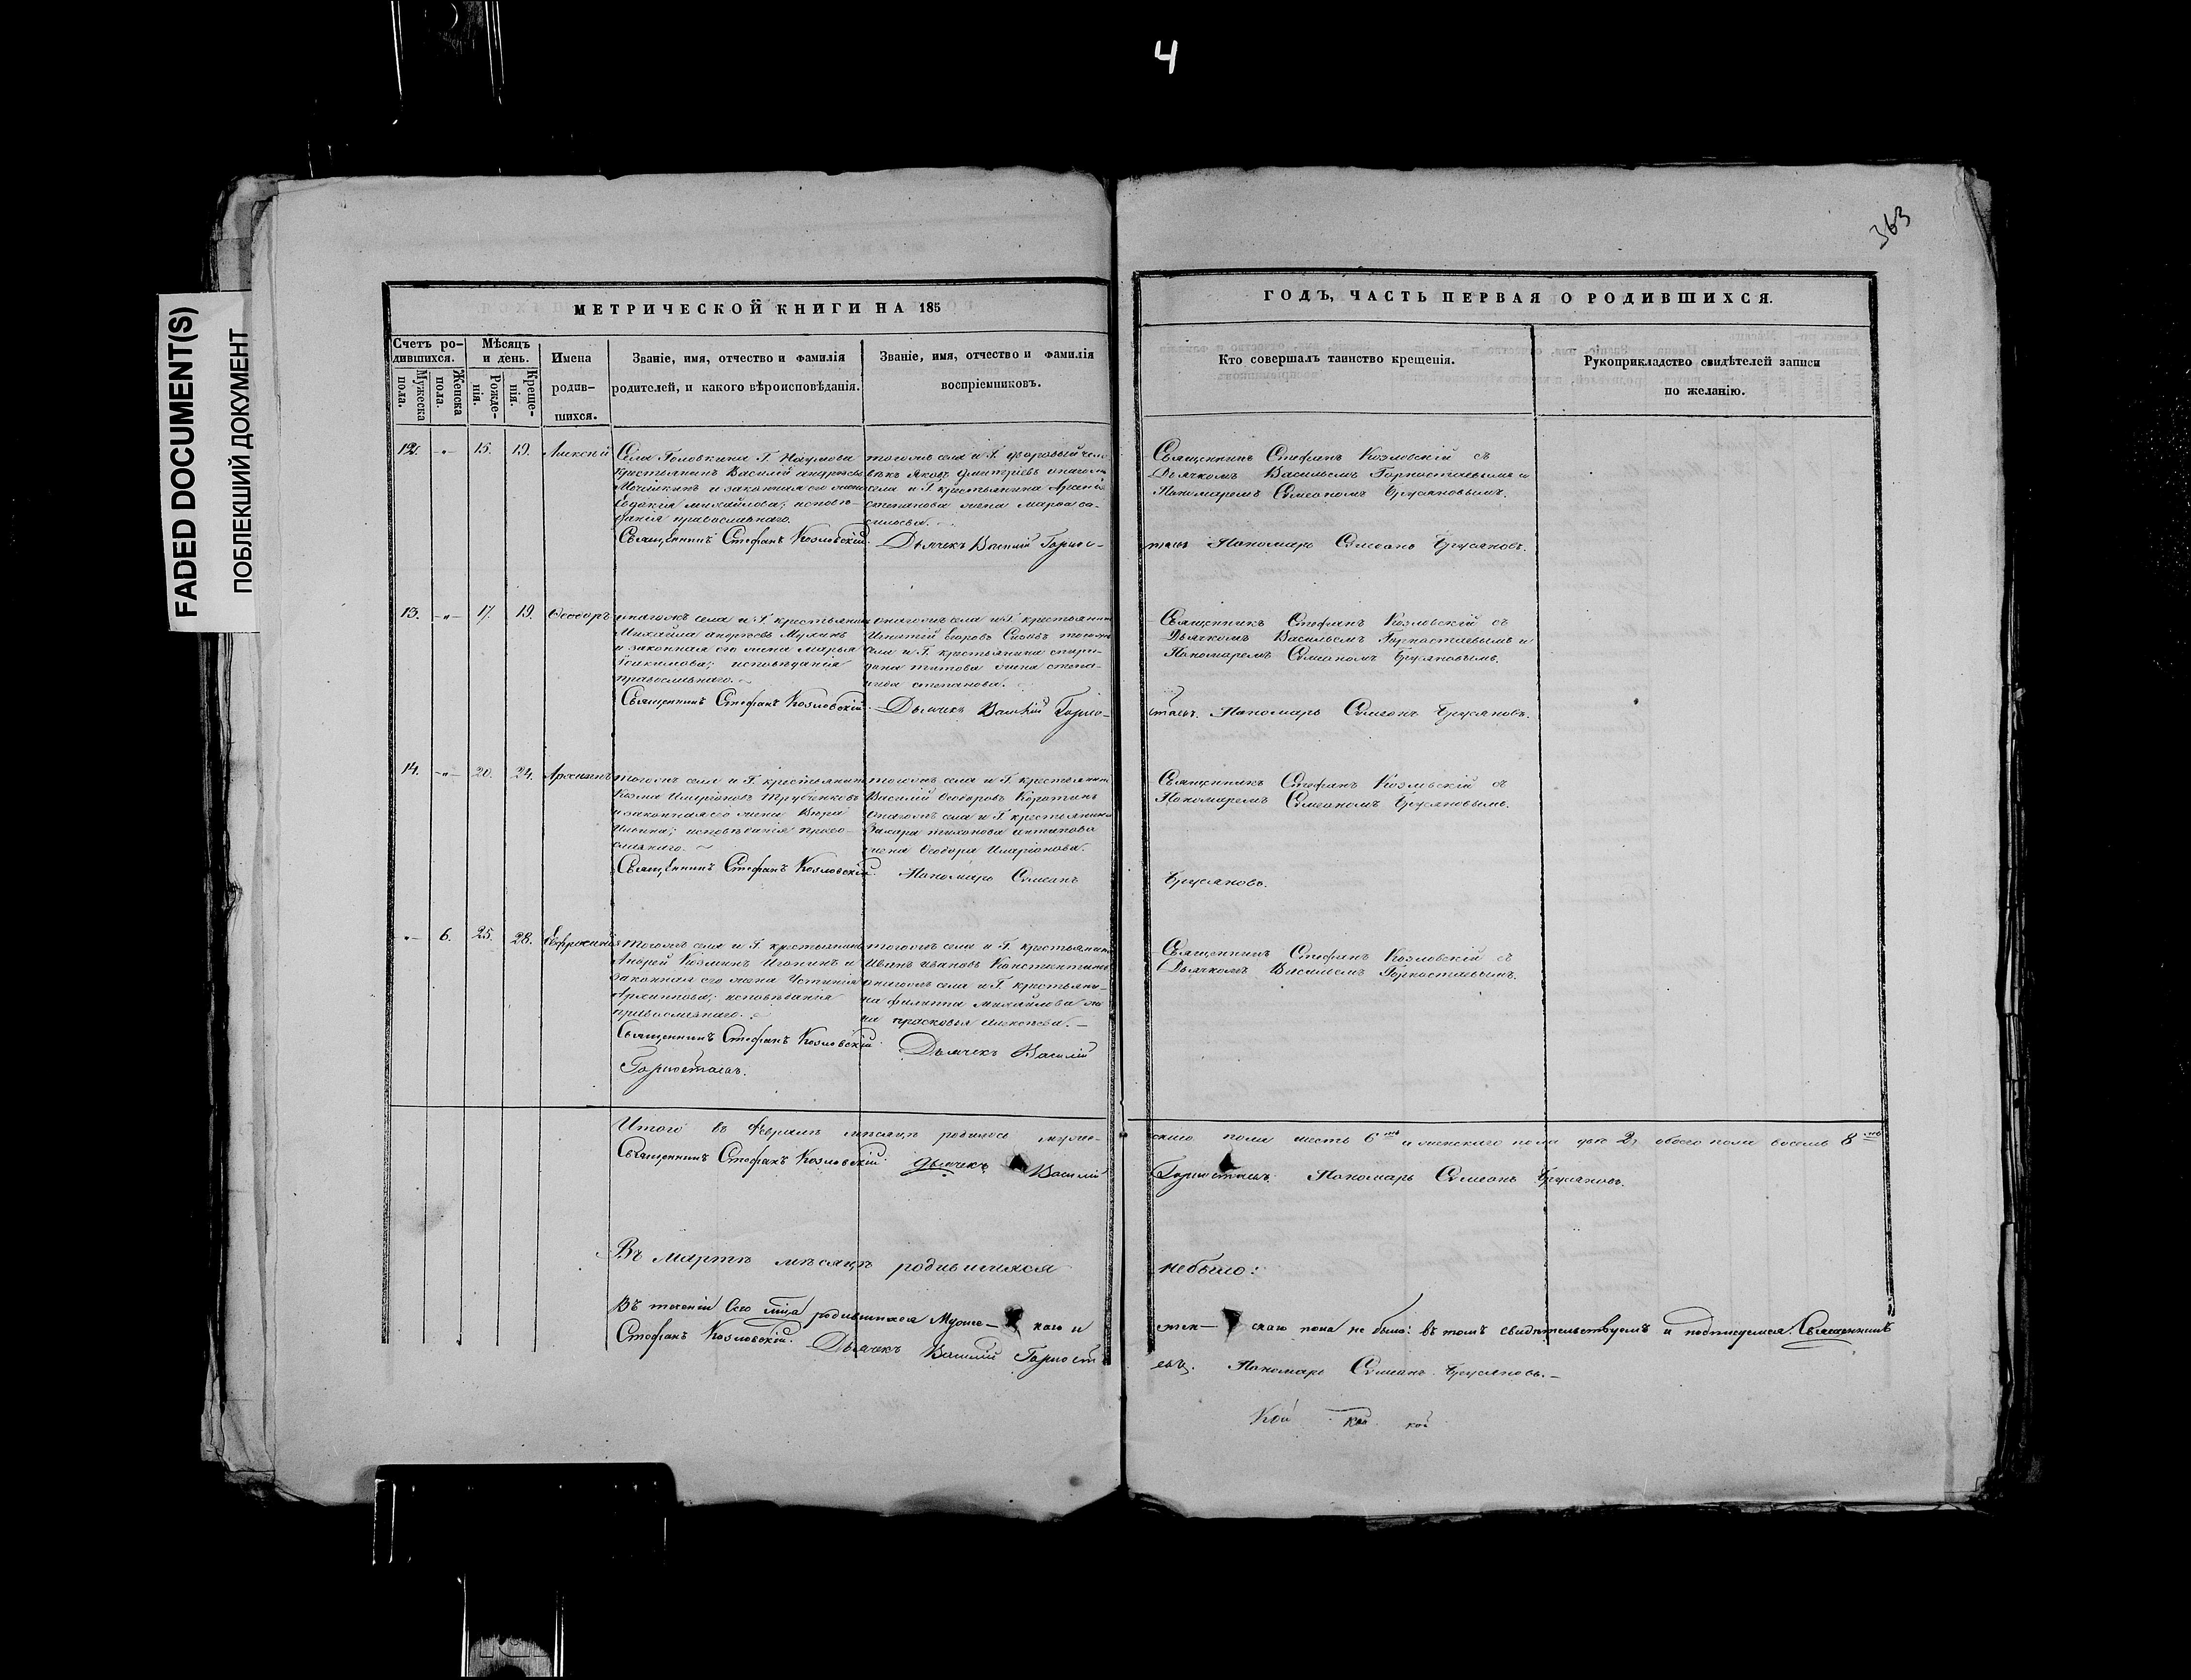 4
363
FADED DOCUMENT(S)
ПОБЛЕКШИЙ ДОКУМЕНТ
МЕТРИЧЕСКОЙ КНИГИ НА 185
Счетъ ро-
дившихся.
Мужеска
пола.
Женска
пола.
Мѣсяцъ
и день.
Рожде-
нія.
Креще-
нія.
Имена
родив-
шихся.
Званіе, имя, отчество и фамилія
родителей, и какого вѣроисповѣданія.
Званіе, имя, отчество и фамилія
воспріемниковъ.
ГОДЪ, ЧАСТЬ ПЕРВАЯ О РОДИВШИХСЯ.
Кто совершалъ таинство крещенія.
Рукоприкладство свидѣтелей записи
по желанію.
12. -"- 15. 19. Алексѣй
Села Головкина Г. Наумова
крестьянинъ Василій андреевъ
и законная его жена
Евдокія михайлова; исповѣ-
данія православнаго.
Священникъ Стефанъ Козловскій.
тогожъ села и Г. дворовый чело
вѣкъ Яковъ дмитріевъ онагожъ
села и Г. крестьянина
степанова жена марѳа ва-
сильева.
Дьячекъ Василій Горно-
Священникъ Стефанъ Козловскій съ
Дьячкомъ Васильемъ Горностаевымъ и
Пономаремъ Симеономъ Брусяновымъ.
стаевъ Пономарь Симеонъ Брусяновъ.
13. -"- 17. 19. Ѳеодоръ
онагожъ села и Г. крестьянинъ
Михайла андреевъ Мухинъ
и законная его жена Марья
исповѣданія
православнаго.
Священникъ Стефанъ Козловскій.
онагожъ села и Г. крестьянинъ
Игнатій Егоровъ тогожъ
села и Г. крестьянина спири-
дона титова жена степа-
нида степанова.
Дьячекъ Василій Горно-
Священникъ Стефанъ Козловскій съ
Дьячкомъ Васильемъ Горностаевымъ и
Пономаремъ Симеономъ Брусяновымъ.
стаевъ. Пономарь Симеонъ Брусяновъ.
14. -"- 20. 24.
тогожъ села и Г. крестьянинъ
Козма Иларіоновъ Трубченковъ
и законная его жена Вѣра
исповѣданія право-
славнаго.
Священникъ Стефанъ Козловскій.
тогожъ села и Г. крестьянинъ
Василій Ѳеодоровъ
онагожъ села и Г. крестьянина
Захара тихонова антипова
жена Ѳеодора Иларіонова.
Пономарь Симеонъ
Священникъ Стефанъ Козловскій съ
Пономаремъ Симеономъ Брусяновымъ.
Брусяновъ.
"- 6. 25. 28. Евфросинія
тогожъ села и Г. крестьянинъ
Андрей Козминъ Игонинъ и
законная его жена Устинія
Архиппова; исповѣданія
православнаго.
Священникъ Стефанъ Козловскій.
Горностаевъ.
тогожъ села и Г. крестьянинъ
Иванъ ивановъ Константиновъ
онагожъ села и Г. крестьяни-
на филиппа михайлова же
на прасковья алексѣева.
Дьячекъ Василій
Священникъ Стефанъ Козловскій съ
Дьячкомъ Васильемъ Горностаевымъ.
Итого въ Февралѣ мѣсяцѣ родилось муже-
скаго пола шесть 6ть и женскаго пола двѣ 2, обоего пола восемь 8мь
Священникъ Стефанъ Козловскій. Дьячекъ Василій
Горностаевъ. Пономарь Симеонъ Брусяновъ.
Въ мартѣ мѣсяцѣ родившихся
небыло:
Въ теченіи Сего мѣсяца родившихся Муже- каго и
жен- скаго пола не было: въ томъ свидѣтельствуемъ и подписуемся. Священникъ
Стефанъ Козловскій. Дьячекъ Василій Горноста
евъ. Пономарь Симеонъ Брусяновъ.
Кой кой кой